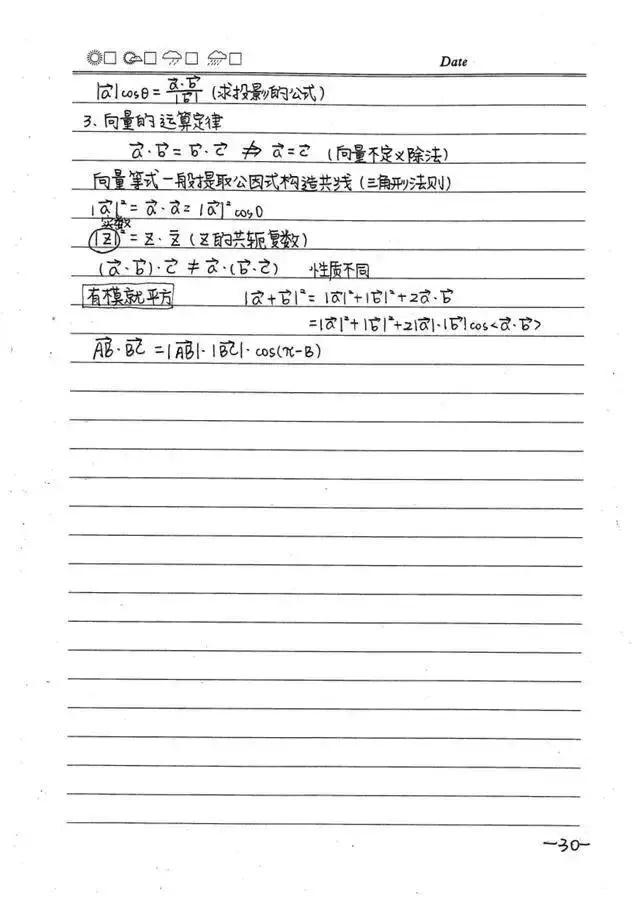 Date
|a⃗|cosθ = a⃗·b⃗/|b⃗| (求投影的公式)
3. 向量的运算定律
a⃗·b⃗ = b⃗·c⃗ ⇏ a⃗ = c⃗ (向量不定义除法)
向量等式一般提取公因式构造共线 (三角形法则)
|a⃗|² = a⃗·a⃗ = |a⃗|² cos0
实数
|z|² = z·z̄ (z的共轭复数)
(a⃗·b⃗)·c⃗ ≠ a⃗·(b⃗·c⃗) 性质不同
有模就平方 |a⃗+b⃗|² = |a⃗|²+|b⃗|²+2a⃗·b⃗
=|a⃗|²+|b⃗|²+2|a⃗|·|b⃗|cos<a⃗·b⃗>
AB⃗·BC⃗ = |AB⃗|·|BC⃗|·cos(π-B)
-30-